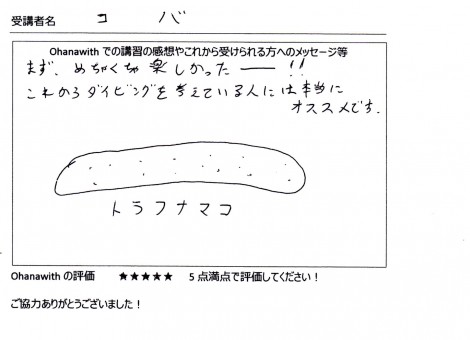 受講者名 コバ
Ohanawith での講習の感想やこれから受けられる方へのメッセージ等
まず、めちゃくちゃ楽しかったーー!!
これからダイビングを考えている人には本当に
オススメです。
トラフナマコ
Ohanawith の評価 ★★★★★ 5 点満点で評価してください！
ご協力ありがとうございました！